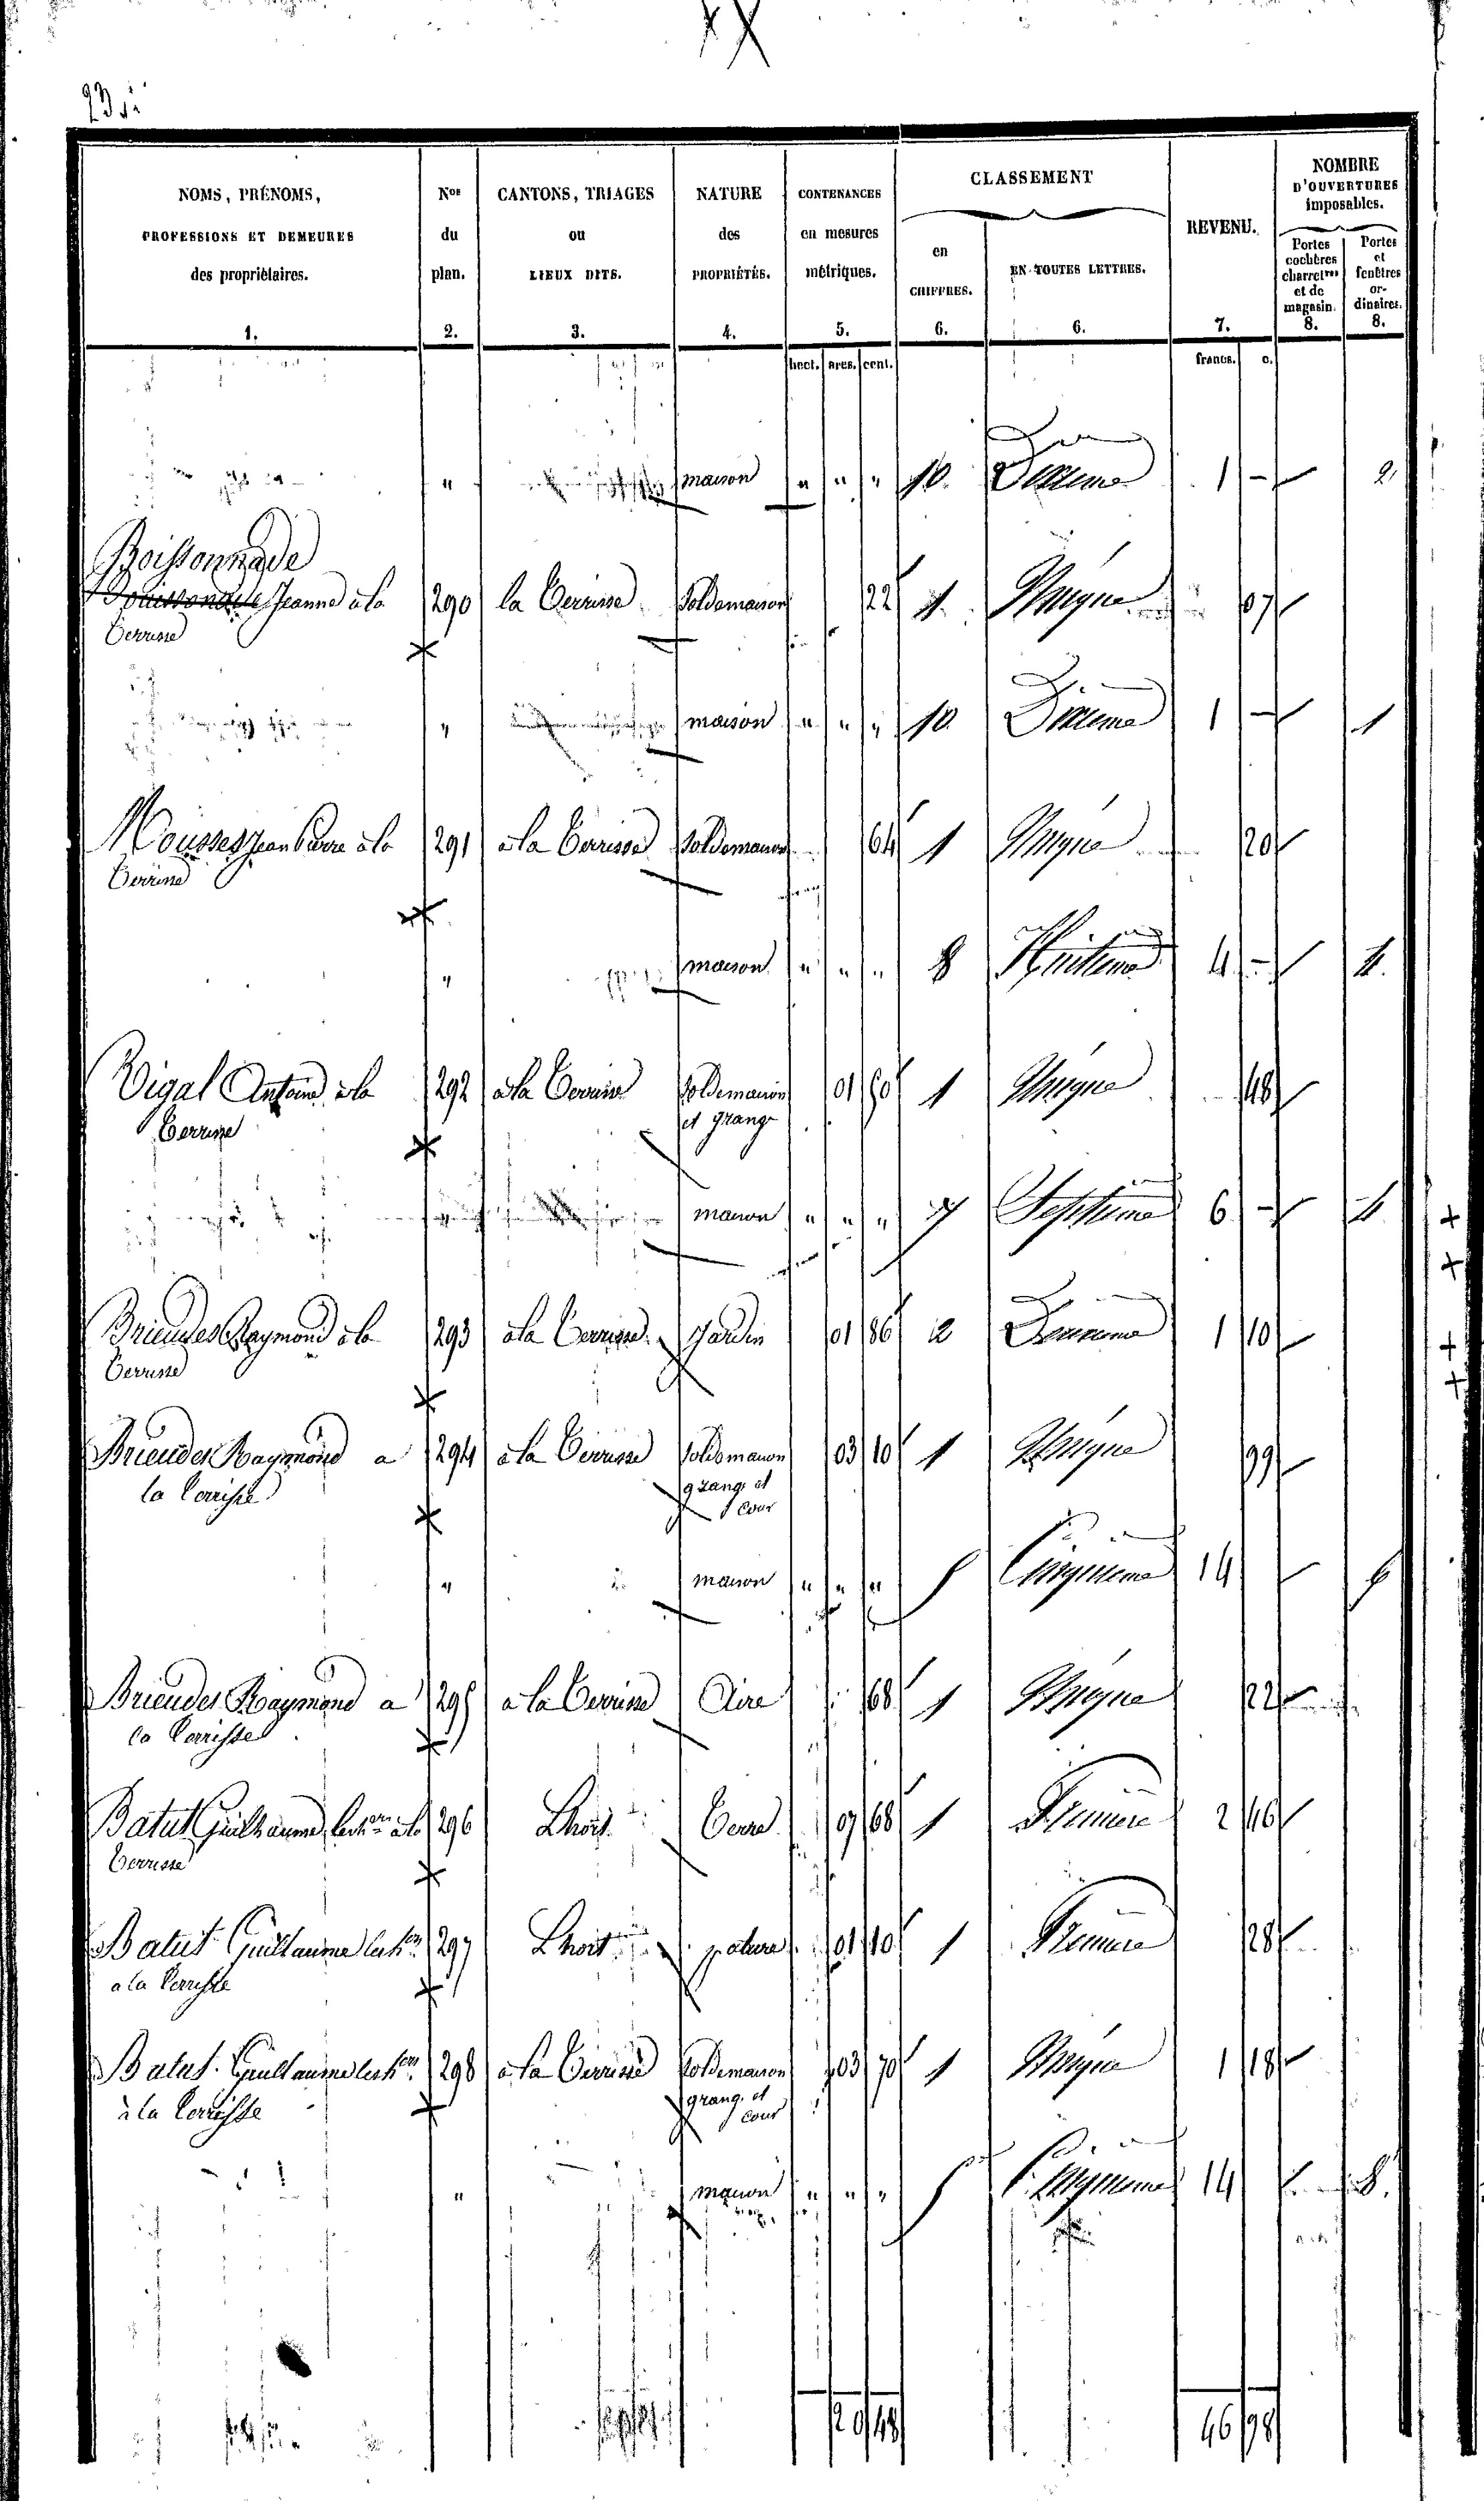 NOMS, PRÉNOMS, PROFESSIONS ET DEMEURES des propriétaires. 1.
Nos du plan. 2.
CANTONS, TRIAGES ou LIEUX DITS. 3.
NATURE des PROPRIÉTÉS. 4.
CONTENANCES en mesures métriques. 5.
CLASSEMENT
en CHIFFRES. 6.
EN TOUTES LETTRES. 6.
REVENU. 7.
NOMBRE D'OUVERTURES imposables.
Portes cochères charret.res et de magasin. 8.
Portes et fenêtres ordinaires. 8.
hect. ares. cent. francs. c.
" maison " " " 10 Dixieme 1 - 2
Boissonnade
Jeanne à la 290 la Terrisse Sol de maison 22 1 Unique 07
Terrisse
" maison " " " 10 Dixieme 1 - 1
Mousses Jean Pierre à la 291 a la Terrisse Sol de maison 64 1 Unique 20
Terrisse
" maison " " " 8 Huitieme 4 - 4
Vigal Antoine à la 292 a la Terrisse Sol de maison 01 50 1 Unique 48
Terrisse et grange
maison " " " 7 Septieme 6 - 4
Brieudes Raymond à la 293 a la Terrisse Jardin 01 86 2 Deuxieme 1 10
Terrisse
Brieudes Raymond a 294 a la Terrisse Sol de maison 03 10 1 Unique 99
la Terrisse grange et
cour
" maison " " " 5 Cinquieme 14 6
Brieudes Raymond a 295 a la Terrisse Aire 68 1 Unique 22
la Terrisse
Batut Guilhaume a la 296 Lhort Terre 07 68 1 Premiere 2 46
Terrisse
Batut Guillaume 297 Lhort pature 01 10 1 Premiere 28
a la Terrisse
Batut Guillaume 298 a la Terrisse Sol de maison 03 70 1 Unique 1 18
à la Terrisse grange et
cour
" maison " " " 5 Cinquieme 14 8
20 48 46 98